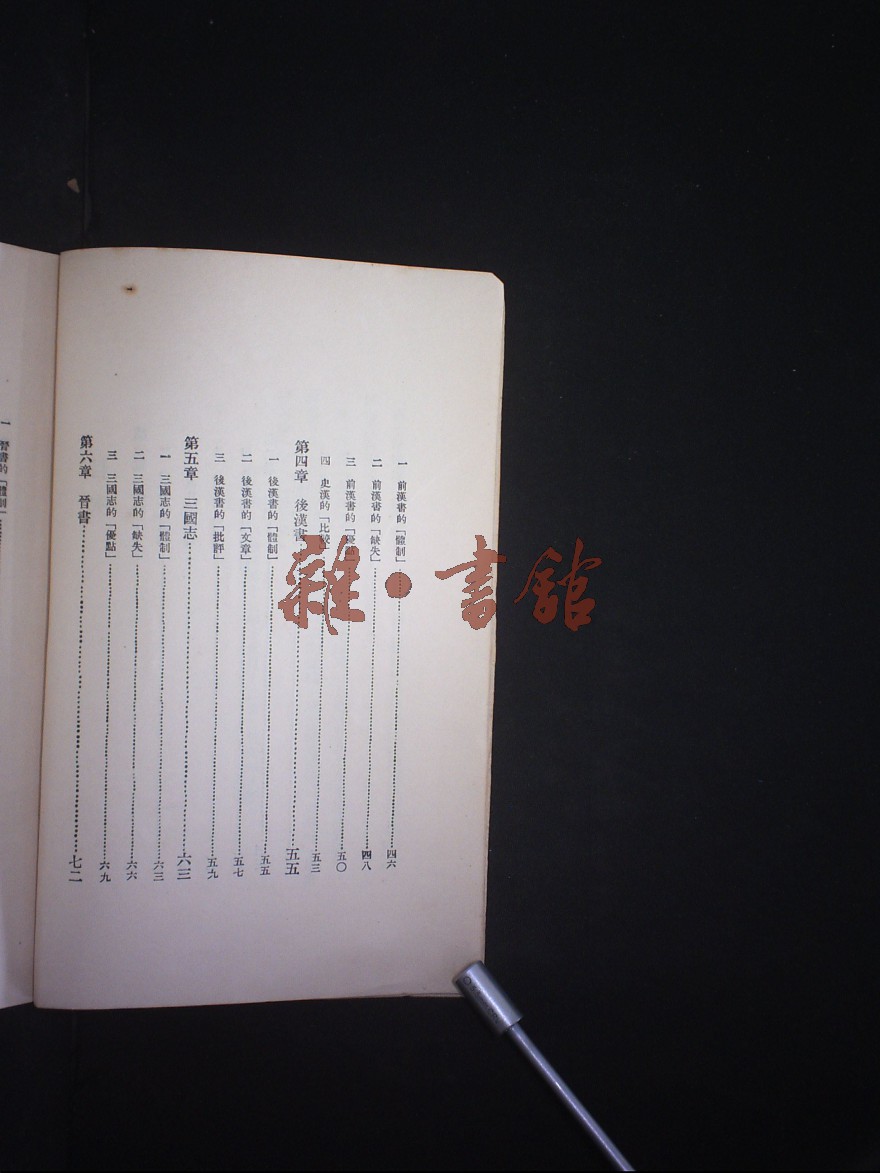 一 前漢書的「體制」 四六
二 前漢書的「缺失」 四八
三 前漢書的「優點」 五〇
四 史漢的「比較」 五三
第四章 後漢書 五五
一 後漢書的「體制」 五五
二 後漢書的「文章」 五七
三 後漢書的「批評」 五九
第五章 三國志 六三
一 三國志的「體制」 六三
二 三國志的「缺失」 六六
三 三國志的「優點」 六九
第六章 晉書 七二
一 晉書的「體制」
雜·書館